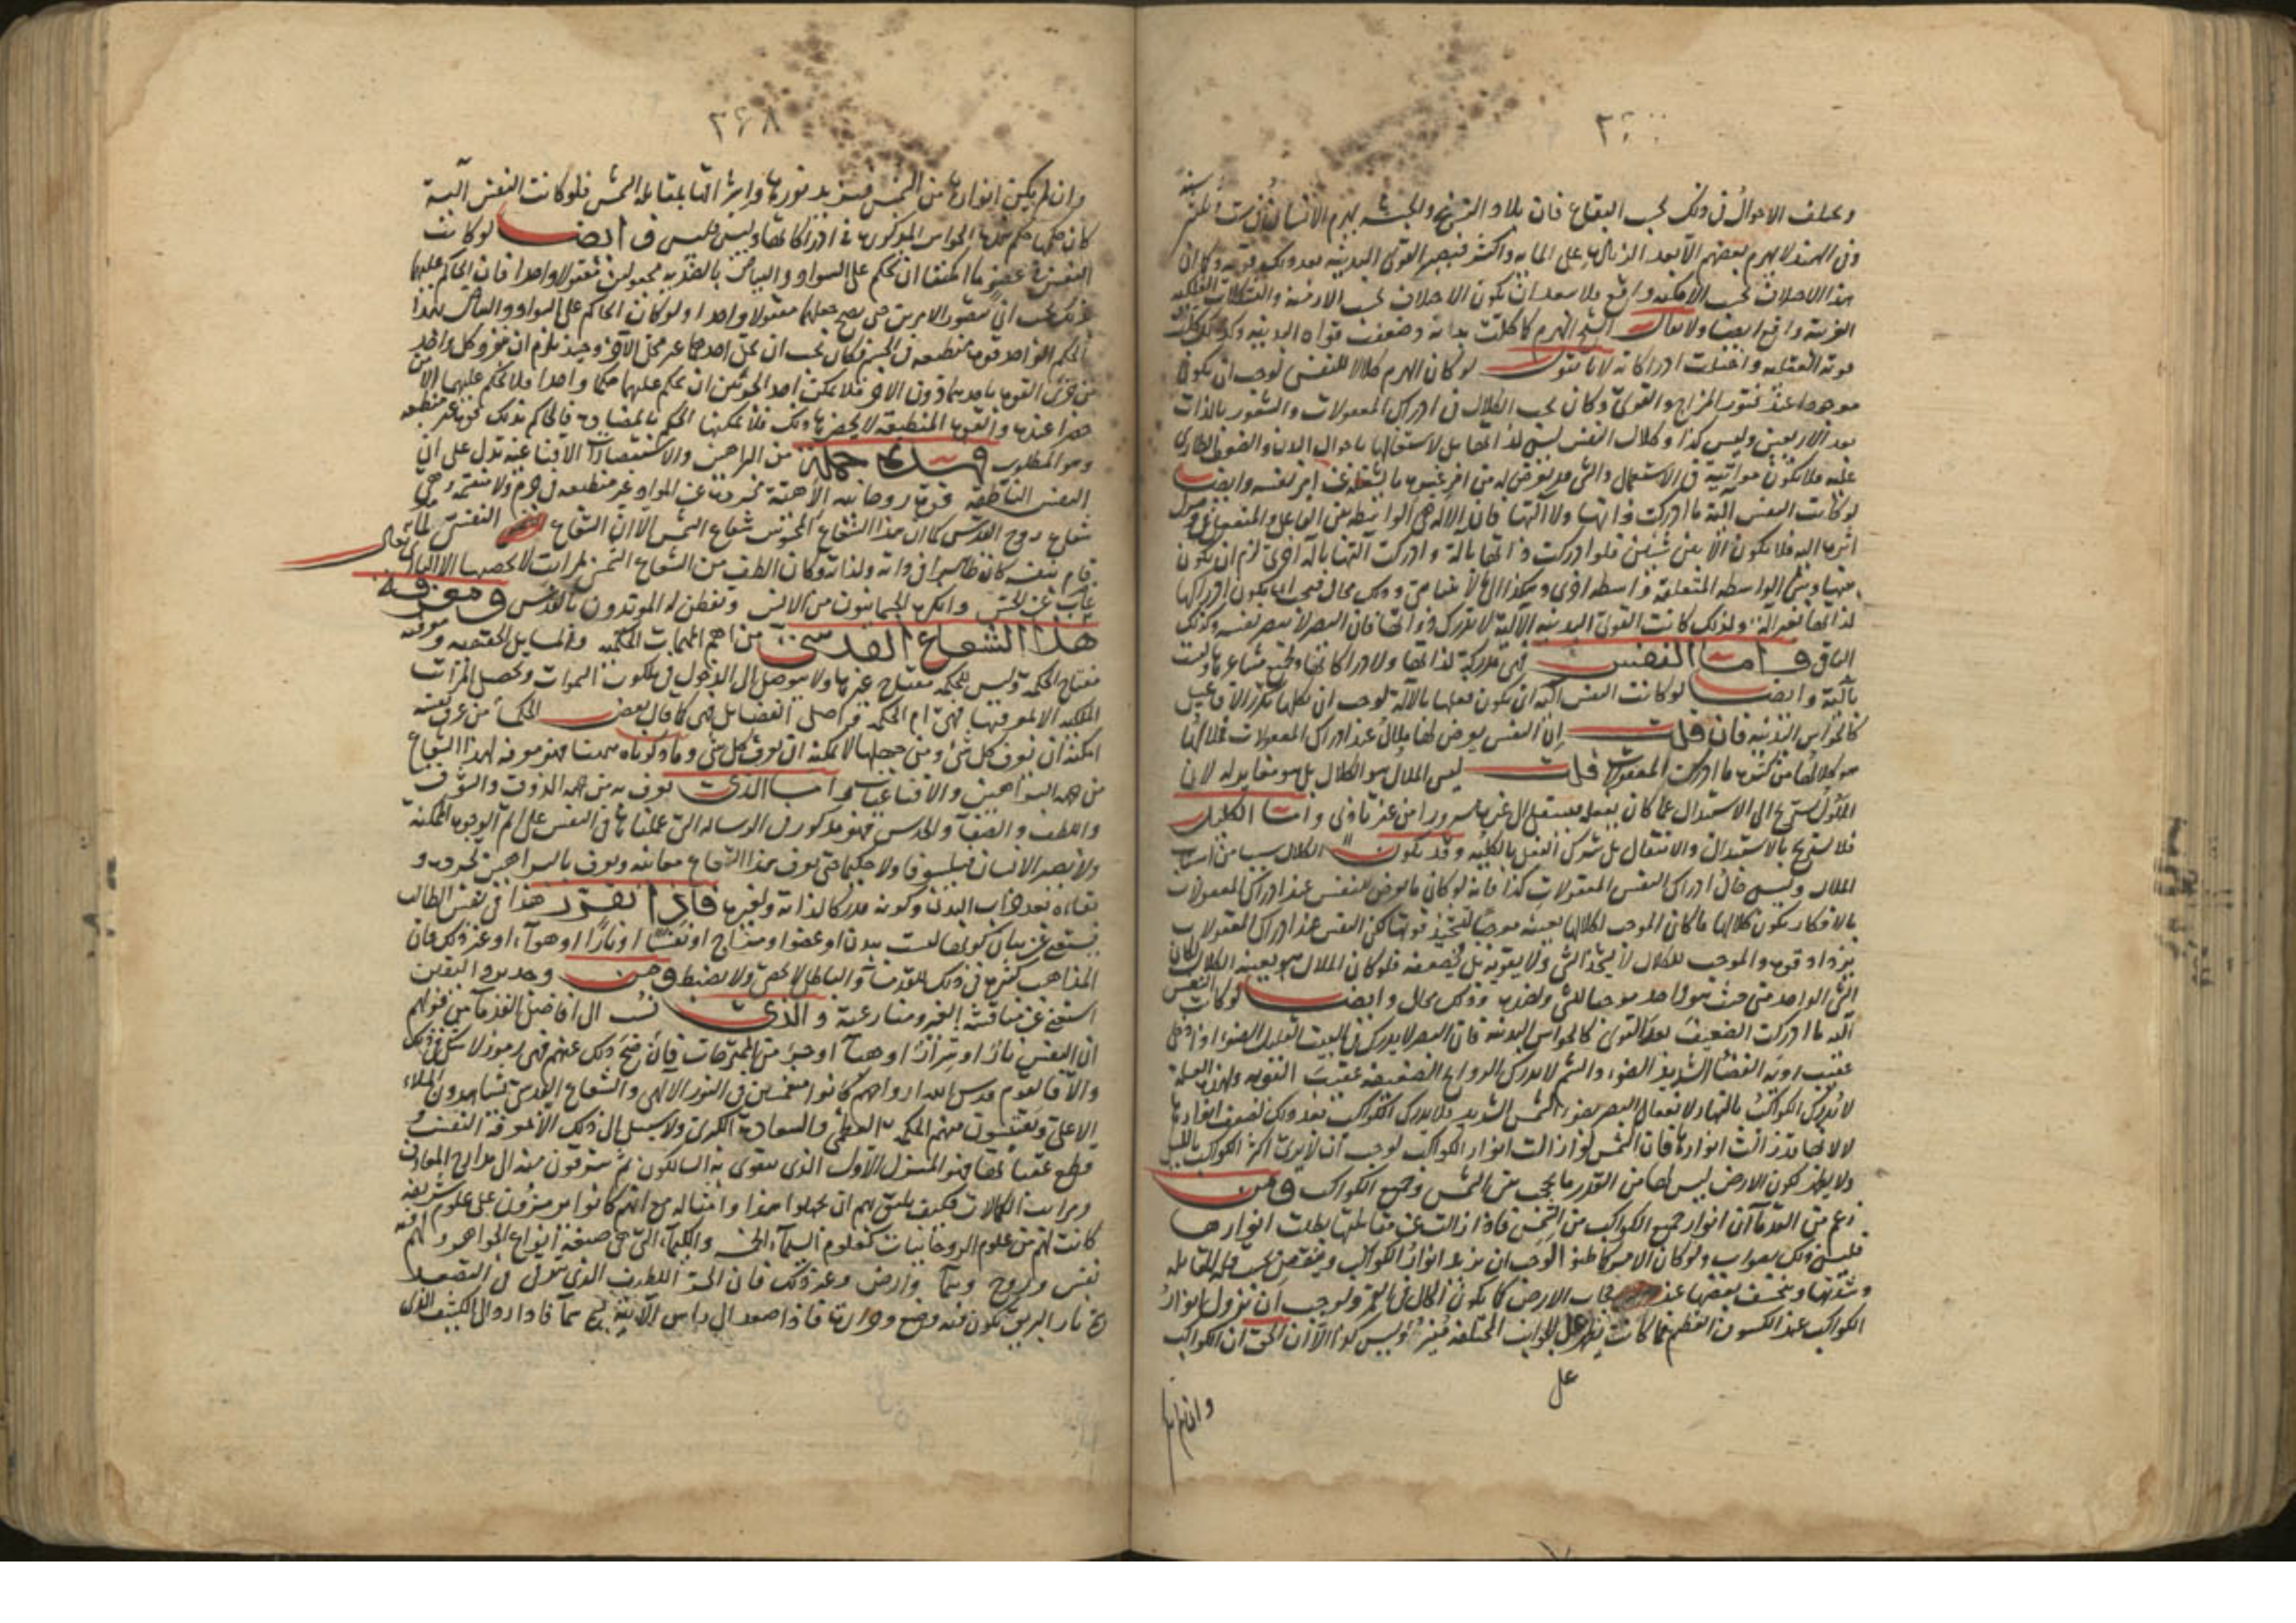 ويختلف الاحوال في ذلك بحسب البقاع فان بلاد الزنج والحبشة يهرم الانسان في ستين سنة
وفي الهند لا يهرم بعضهم الا بعد الزيادة على المايه واكثر فيصير القوى البدنيه بعد ذلك
هذا الاختلاف بحسب الامكنه واقع فلا يبعد ان يكون الاختلاف بحسب الازمنة والتشكلات الفلكيه
الغريبة واقع ايضا ولا يقال الشيخ الهرم كما كلت بدنه وضعفت قواه البدنيه وكذلك كلت
قوته العقليه واختلت ادراكاته لانا نقول لو كان الهرم كلالا للنفس لوجب ان يكون
موجودا عند فتور المزاج والقوى وكان يجب الكلال في ادراك المعقولات والشعور بالذات
بعد الاربعين وليس كذا وكلال النفس ليس لذاتها بل لاشتغالها باحوال البدن والضعف الطاري
عليه فلا يكون مواتية في الاستعمال والشي قد يعرض له من امر غيره ما يشغله عن امر نفسه وايضا
لو كانت النفس آلية ما ادركت ذاتها ولا آلتها فان الآله هي الواسطه بين الفاعل والمنفعل
اثره اليه فلا يكون الا بين شيئين فلو ادركت ذاتها بآلة وادركت آلتها بآلة اخرى لزم ان يكون
بينها وبين الواسطه المتعلقة واسطه اخرى وهكذا الى لا يتناهى وذلك محال فيجب ان يكون ادراكها
لذاتها بغير آلة ولذلك كانت القوى البدنيه الآلية لا تدرك ذواتها فان البصر لا يبصر نفسه وكذلك
الباقي واما النفس فهي مدركة لذاتها ولادراكاتها ولجميع مشاعرها وليست
بآلية وايضا لو كانت النفس آليه ان يكون فعلها بالآلة لوجب ان يكلها تكرر الافاعيل
كالحواس البدنيه فان قلت ان النفس يعرض لها ملال عند ادراك المعقولات
هو كلالها من كثرة ما ادركت المعقولات قلت ليس الملال هو الكلال بل هو مغاير له لان
الملول يستريح الى الاستبدال عما كان يفعله فينتقل الى غيره بسرور من غير تاذي واما الكلال
فلا يستريح بالاستبدال والانتقال بل بترك الفعل بالكليه وقد يكون الكلال سببا من اسباب
الملال وليس حال ادراك النفس المعقولات كذا فانه لو كان ما يعرض للنفس عند ادراك المعقولات
بالافكار يكون كلالها ما كان الموجب لكلالها بعينه موجبا لتشحيذ قوتها لكن النفس عند ادراك المعقولات
يزداد قوة والموجب للكلال لا يشحذ الشي ولا يقويه بل يضعفه فلو كان الملال هو بعينه الكلال لكان
الشي الواحد من حيث هو واحد موجبا للشي ولضده وذلك محال وايضا لو كانت النفس
آلية ما ادركت الضعيف بعد القوى كالحواس البدنيه فان البصر لا يدرك في البيت القليل الضوء اذا دخل
عقيب رؤية الفضاء الشديد الضوء والشم لا يدرك الروايح الضعيفه عقيب القويه ولهذه العلة
لا تدرك الكواكب بالنهار لانفعال البصر بضوء الشمس الشديد فلا يدرك الكواكب بعد ذلك لضعف انوارها
لا لانها قد زالت انوارها فان الشمس لو ازالت انوار الكواكب لوجب ان لا يرى اكثر الكواكب بالليل
ولا يظن كون الارض ليس لها من القدر ما يحجب بين الشمس وجميع الكواكب ومن
زعم من القدماء ان انوار جميع الكواكب من الشمس فاذا زالت عن مقابلتها بطلت انوارها
فليس ذلك بصواب ولو كان الامر كما ظنوا لوجب ان يزيد انوار الكواكب وينقص بحسب قلة المقابله
وشدتها وينخسف بعضها عند حجاب الارض كما يكون الحال في القمر ولوجب ان تزول انوار
الكواكب عند الكسوف العظيم كما كانت الجوانب المختلفه وليس كذا الا ان الحق ان الكواكب
على
وان لم يكن
٢٦٨
وان لم يكن انوارها من الشمس فيزيد نورها واشراقها بمقابلة الشمس فلو كانت النفس آلية
كان حكمها حكم هذه الحواس المذكورة في ادراكاتها وليس فليس وايضا لو كانت
النفس في عضو ما امكنها ان تحكم على السواد والبياض بالضديه معقولا واحدا فان الحاكم عليهما
بذلك يجب ان يتصور الامرين حتى يصح جعلهما معقولا واحدا ولو كان الحاكم على السواد والبياض بهذا
الحكم الواحد قوة منطبعه في الجسم فكان يجب ان محل احدهما غير محل الآخر وحينئذ يلزم ان ينفرد كل واحد من
جزئي القوة باحدهما دون الاخر فلا يمكن احد الجزئين ان يحكم عليهما حكما واحدا فلا يحكم عليهما الا من
حضرا عنده والقوة المنطبعه لا يحضرها ذلك فلا يمكنها الحكم بالمضادة فالحاكم بذلك قوة غير منطبعه
وهو المطلوب فهذه جملة من البراهين والاستبصارات الاقناعية تدل على ان
النفس الناطقه قوة روحانيه الاهية مجردة عن المواد غير منطبعه في جرم ولا منقسمه وهي
شعاع روح القدس كما ان هذا الشعاع المحسوس شعاع الشمس الا ان الشعاع النفسي لما
قام بنفسه كان ظاهرا في ذاته ولذاته وكان الطف من الشعاع الشمسي بمرات لا يحصيها الا الباري تعالى
غاب عن الحس وانكره الجسمانيون من الانس وتفطن له المؤيدون بالقدس ومعرفة
هذا الشعاع القدسي من اهم المهمات الحكميه والمسايل الحقيقيه ومعرفته
مفتاح الحكمة وليس للحكمه مفتاح غيرها ولا يتوصل الى الدخول في ملكوت السموات وتحصيل المراتب
الملكيه الا بمعرفتها فهي ام الحكمه واصل الفضايل فهي كما قال بعض الحكماء من عرف نفسه
امكنه ان يعرف كل شي ومن جهلها لا يمكنه ان يعرف كل شي وما ذكرناه ههنا فهو معرفه لهذا الشعاع
من جهة البراهين والاقناعيات واما الذي يعرف به من جهة الذوق والتصرف
واللطف والصفاء والحدس فهو مذكور في الرساله التي عملناها في النفس على اتم الوجوه الممكنه
ولا يصير الانسان فيلسوفا ولا حكيما حتى يعرف هذا الشعاع معاينه ويعرف بالبراهين تجرده و
بقاءه بعد خراب البدن وكونه مدركا لذاته ولغيره فاذا تقرر هذا في نفس الطالب
فيستغني عن بيان كونها ليست بدن او عضوا ومزاج او نفسا او نارا او هواء او غير ذلك فان
المذاهب كثيرة في ذلك للقدماء والباطل لا يحصى ولا يضبط ومن وجد برد اليقين
استغنى عن مناقشة الغير ومنازعته والذي نسب الى افاضل القدماء من قولهم
ان النفس نار او شرار او هباء او جزء من المتحيزات فان صح ذلك عنهم فهي رموز لا شك في ذلك
والا فالقوم قدس الله ارواحهم كانوا منغمسين في النور الالهي والشعاع القدسي يشاهدون الملاء
الاعلى ويقتبسون منهم الحكمه العظمى والسعادة الكبرى ولا سبيل الى ذلك الا بمعرفة النفس
وقطع عقباتها فهو المنزل الاول الذي يقوى به السالكون ثم يترقون منه الى مدارج المعارف
ومراتب الكمالات فكيف يليق بهم ان يجهلوا هذا وامثاله مع انهم كانوا مبرزون على علوم شريفه
كانت لهم من علوم الروحانيات كعلوم السيمياء والكيمياء التي هي صنعة انواع الجواهر ولهم فيه
نفس وروح وسماء وارض وغير ذلك فان الجزء اللطيف الذي يترقى في التصعيد
نار البريق يكون فيه وضح وحرارة فاذا صعد الى راس الآنية سمي سماء فاذا رد الى الكثيف